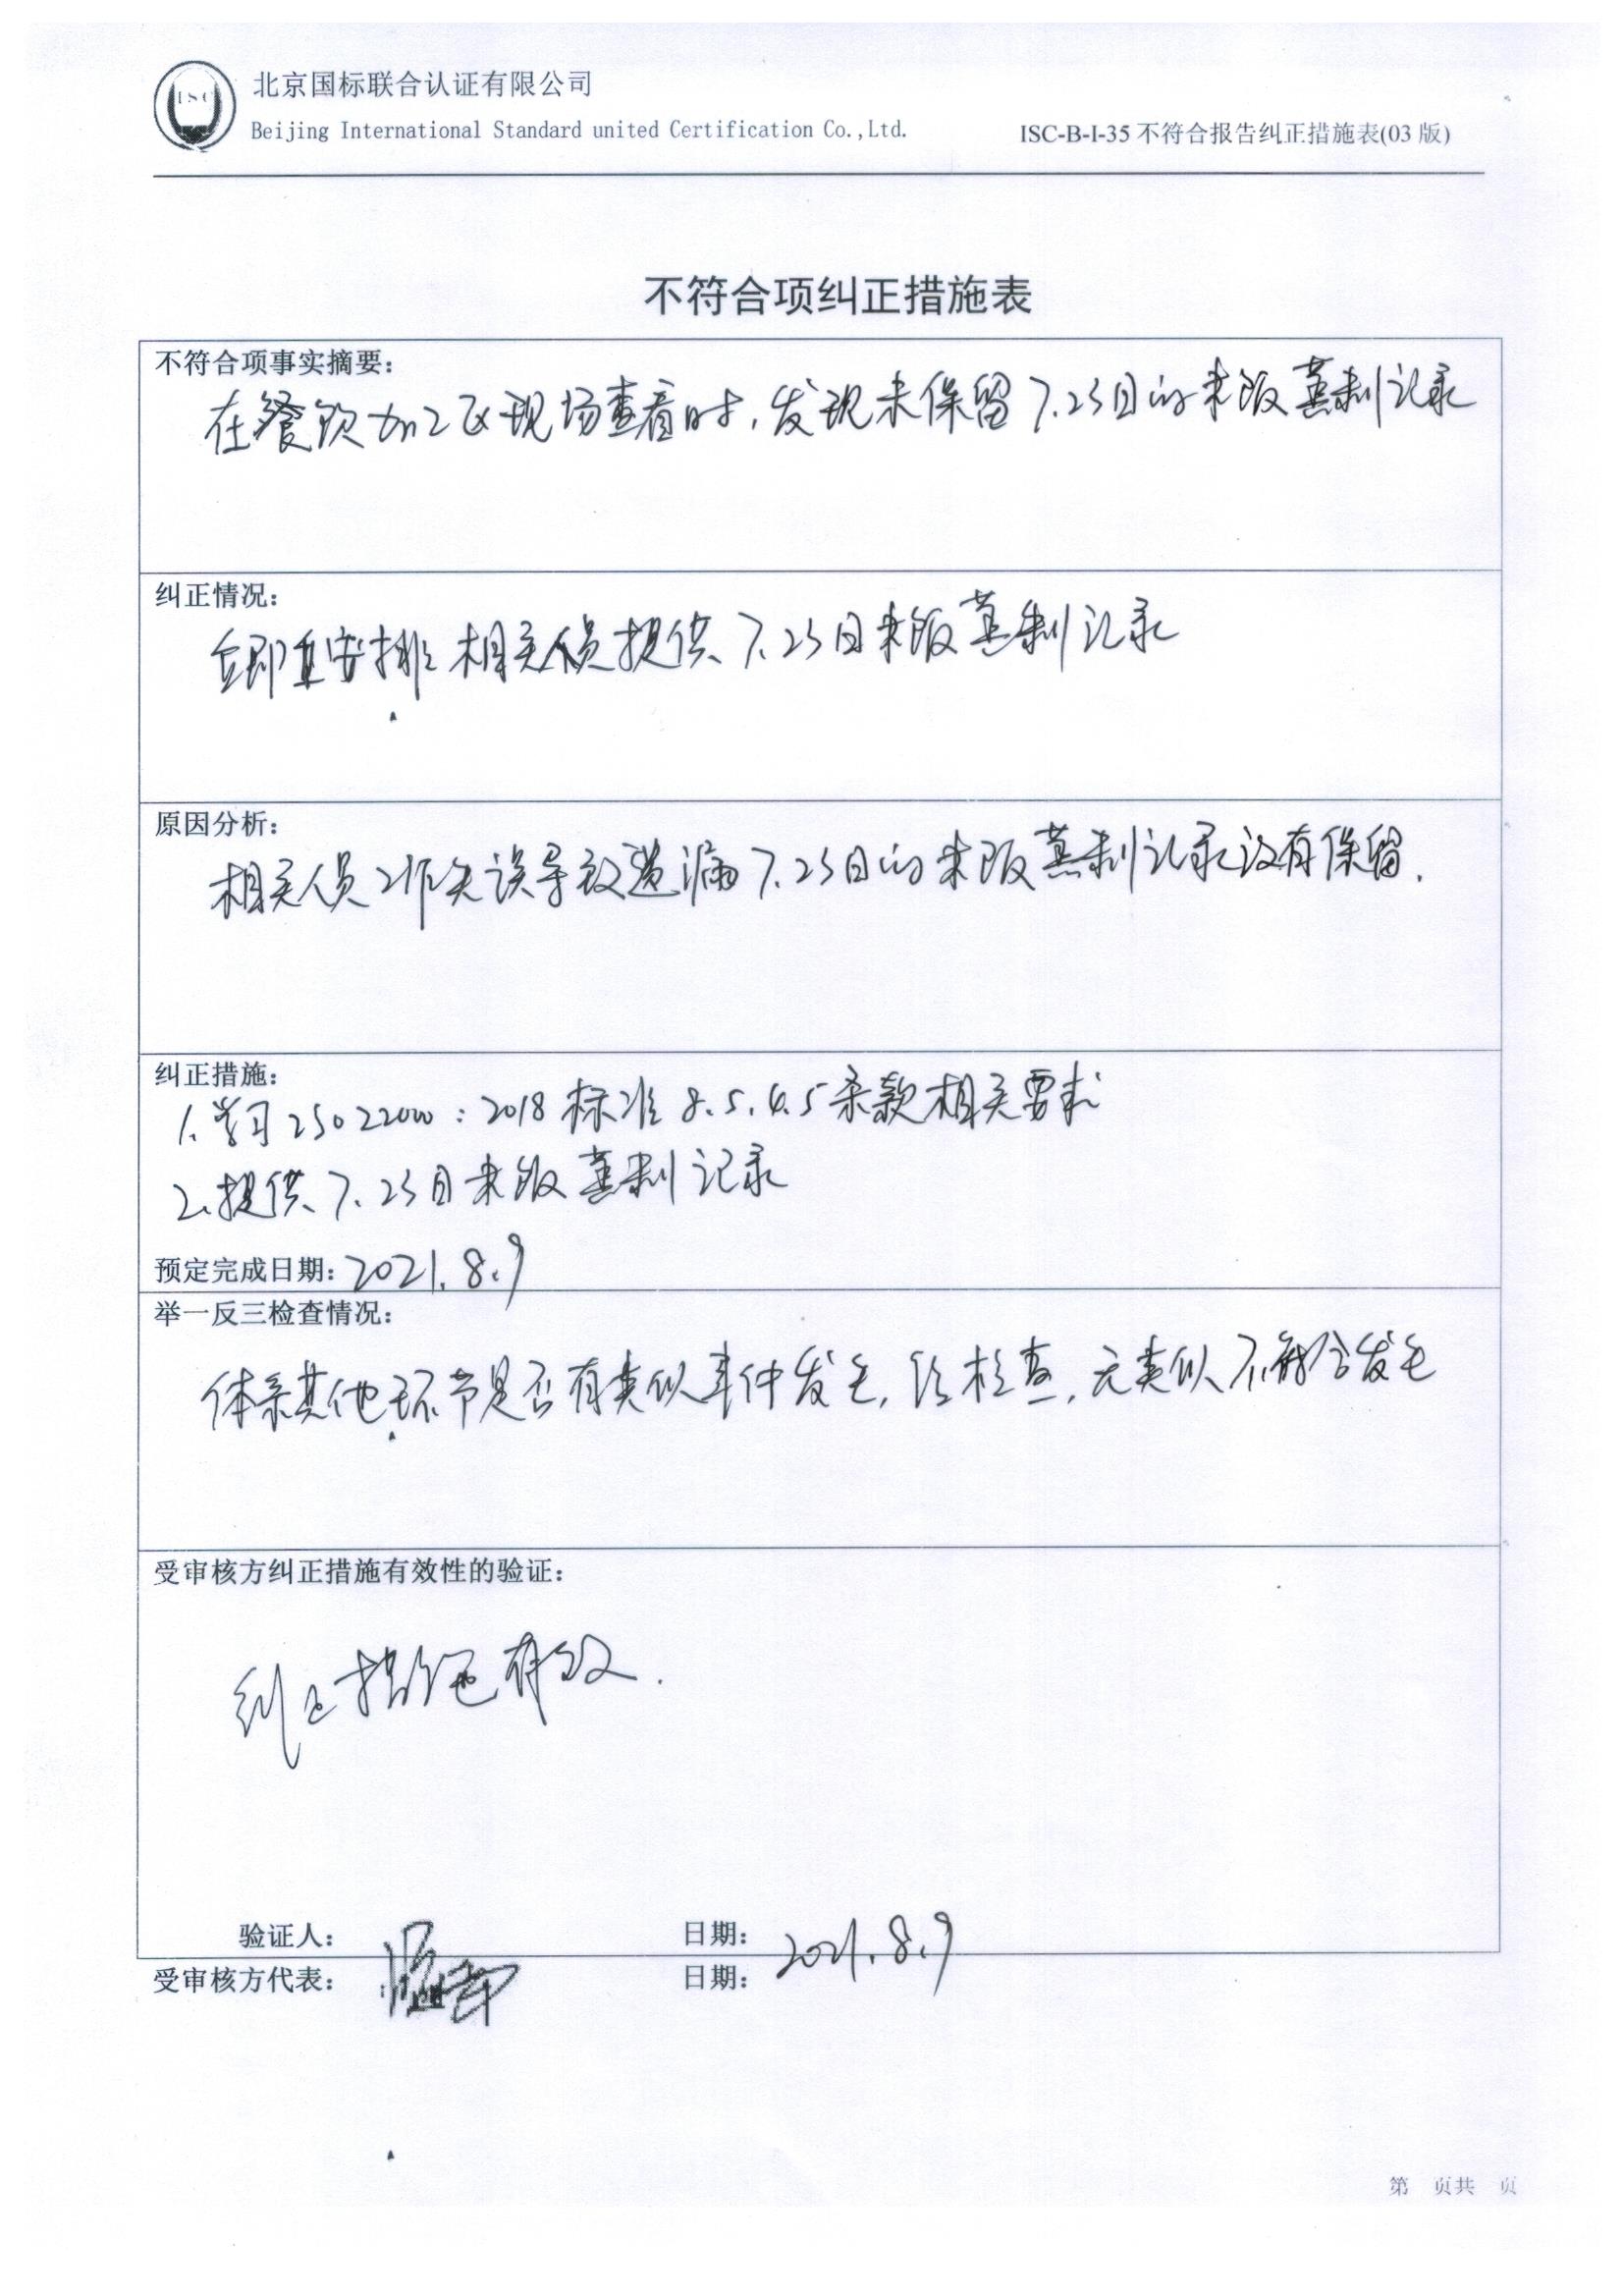 ISC
北京国标联合认证有限公司
Beijing International Standard united Certification Co.,Ltd.
ISC-B-I-35 不符合报告纠正措施表(03 版)
不符合项纠正措施表
不符合项事实摘要：
在餐饮加工区现场查看时，发现未保留7.23日的米饭蒸制记录
纠正情况：
立即安排相关人员提供7.23日米饭蒸制记录
原因分析：
相关人员工作失误导致遗漏7.23日的米饭蒸制记录没有保留.
纠正措施：
1. 学习ISO22000：2018标准8.5.4.5条款相关要求
2. 提供7.23日米饭蒸制记录
预定完成日期：2021.8.9
举一反三检查情况：
体系其他环节是否有类似事件发生，经检查，无类似不符合发生
受审核方纠正措施有效性的验证：
纠正措施已有效.
验证人：
日期：2021.8.9
受审核方代表：
日期：
第 页共 页